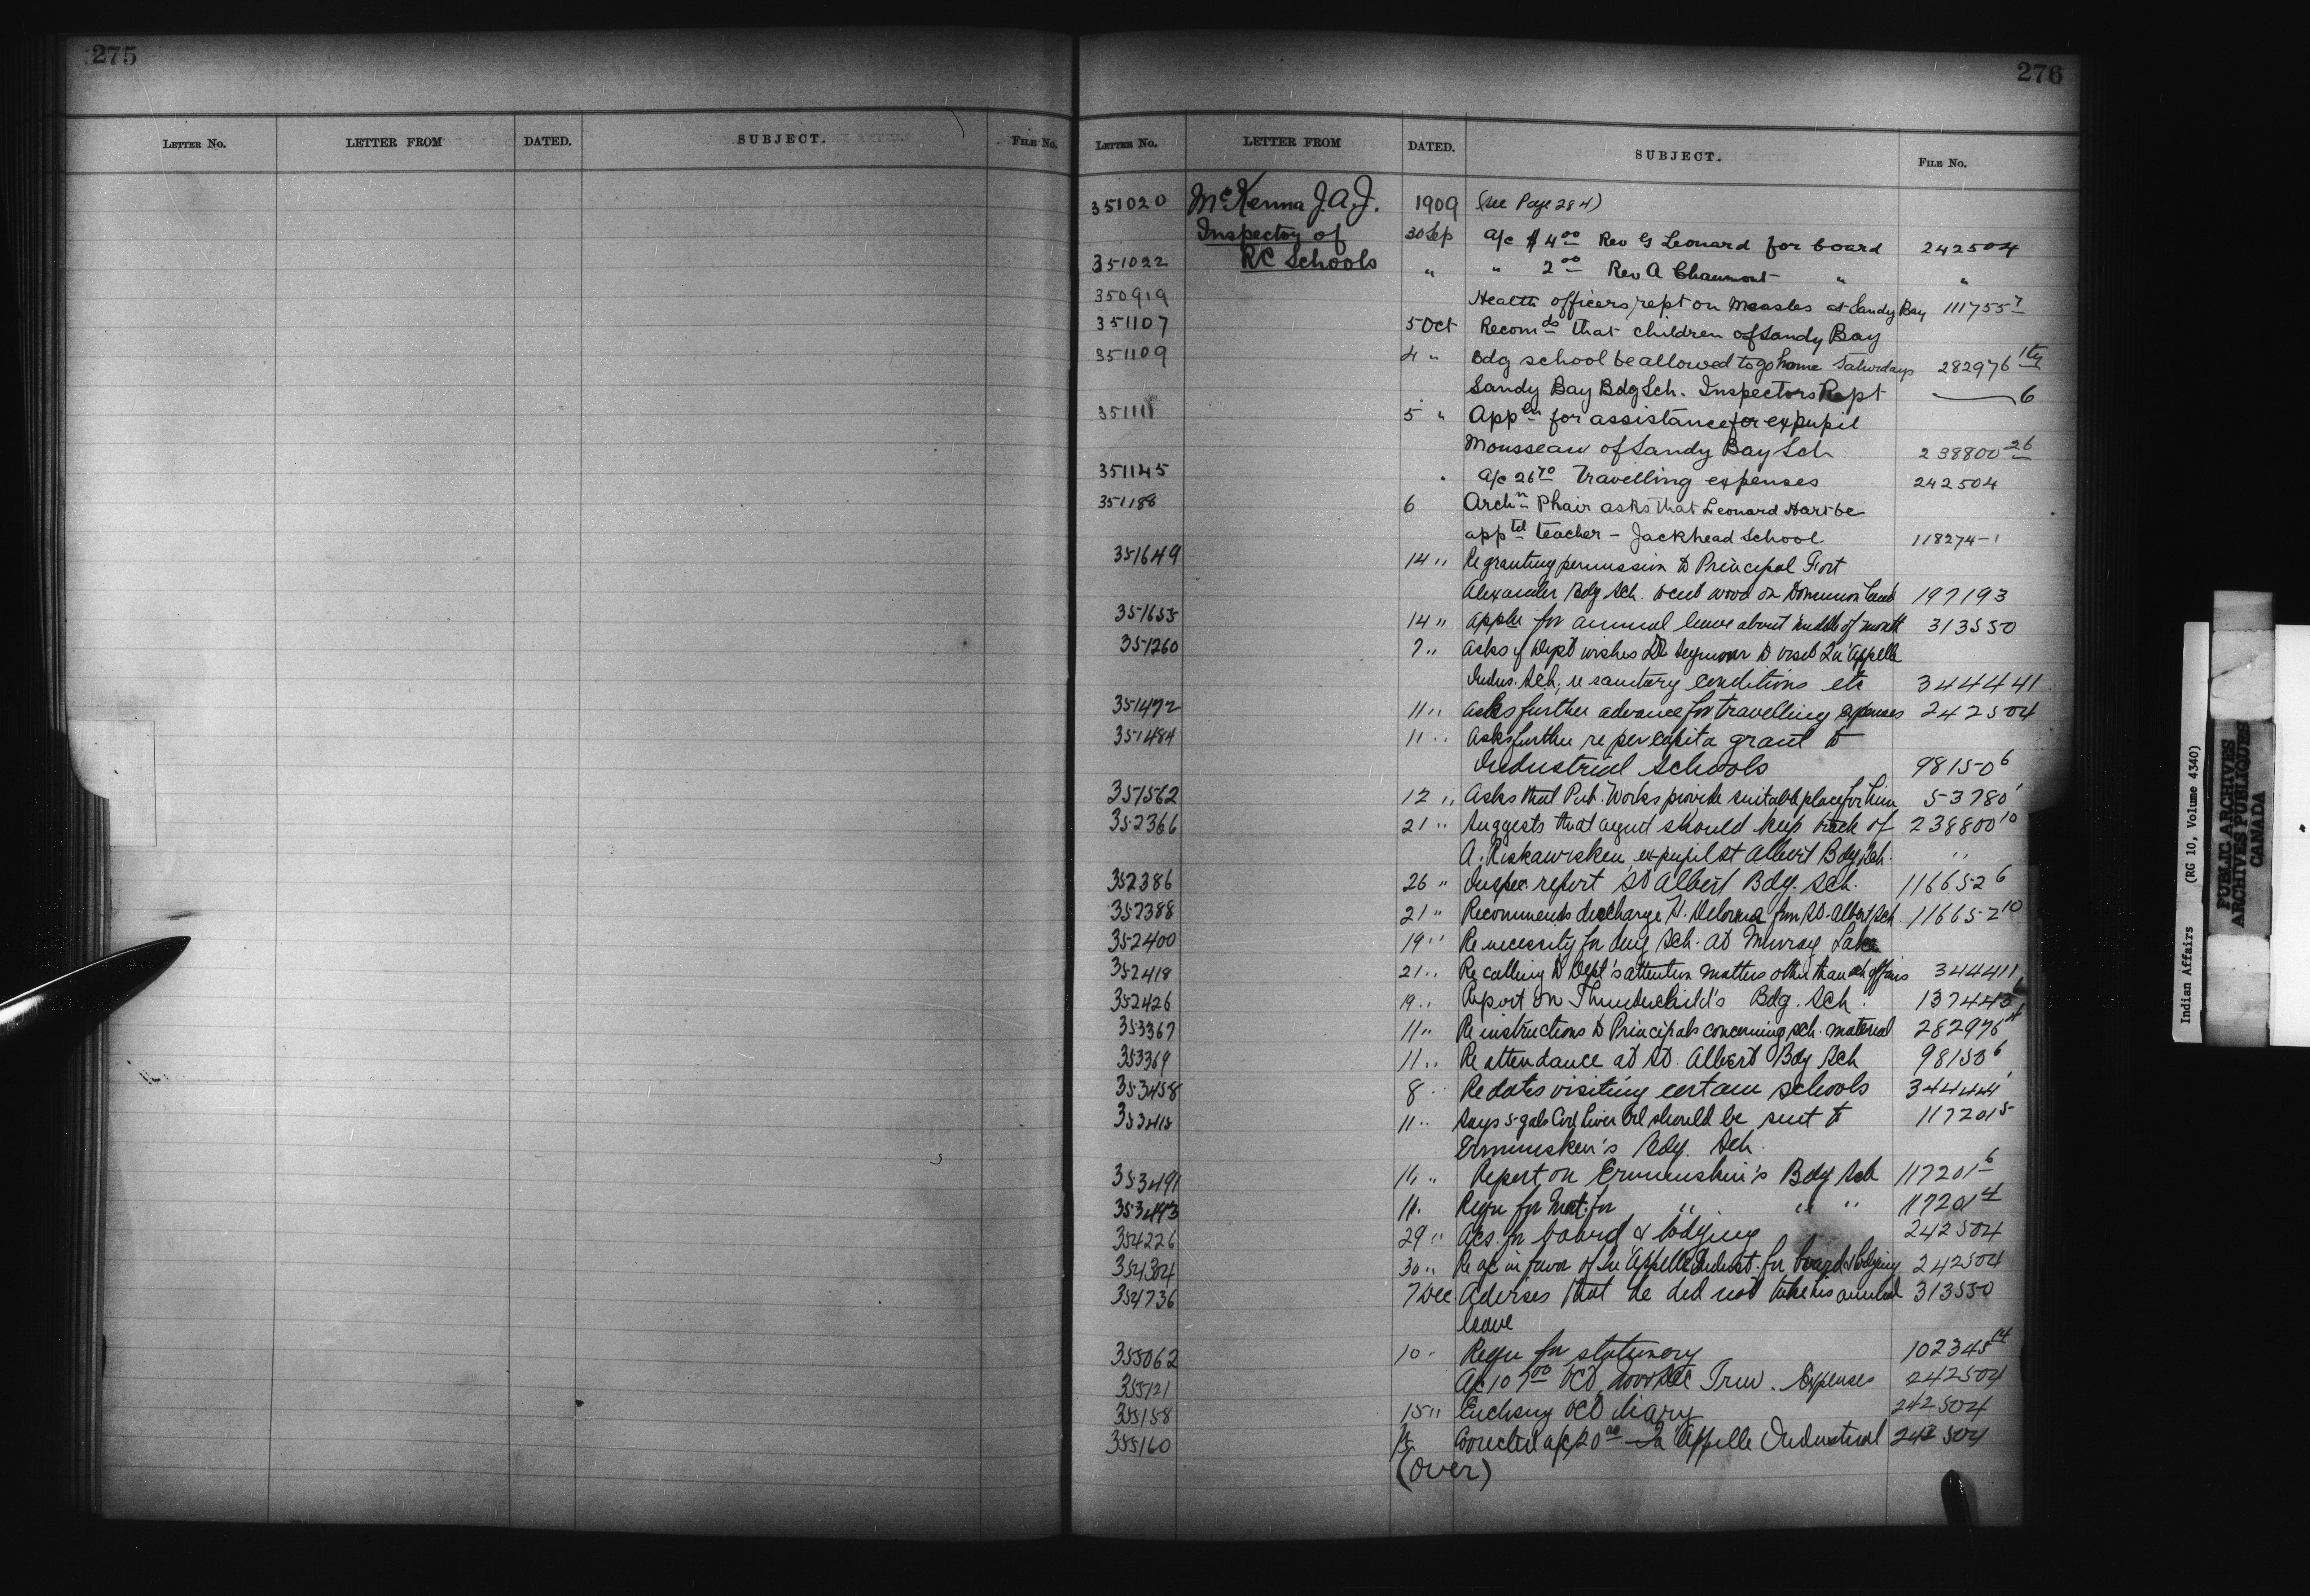 275
LETTER NO. LETTER FROM DATED. SUBJECT. FILE NO.
276
LETTER NO. LETTER FROM DATED. SUBJECT. FILE NO.
351020 McKenna J.A.J. 1909 (see Page 284)
Inspector of 30 Sep a/c $4 00 Rev G Leonard for board 242504
351022 RC Schools " " 2 00 Rev A Chaumont " "
350919 Health officers rept on Measles at Sandy Bay 111755 7
351107 5 Oct Recomds that children of Sandy Bay
351109 4 " Bdg school be allowed to go home Saturdays 282976
Sandy Bay Bdg Sch. Inspectors Rept 6
351111 5 " Appln for assistance for expupil
Mousseau of Sandy Bay Sch 238800 26
351145 " a/c 26 70 Travelling expenses 242504
351188 6 Archn Phair asks that Leonard Hart be
apptd teacher - Jackhead School 118274-1
351649 14 " Re granting permission to Principal Fort
Alexander Bdg Sch. to cut wood on Dominion land 197193
351655 14 " Appln for annual leave about middle of month 313550
351260 7 " Asks if Dept wishes Dr Seymour to visit Qu'Appelle
Indus. Sch. re sanitary conditions etc 344441
351472 11 " Asks further advance for travelling expenses 242504
351484 11 " Asks further re per capita grant to
Industrial Schools 98150 6
351562 12 " Asks that Pub. Works provide suitable place for him 53780 1
352366 21 " Suggests that agent should keep track of 238800 10
A. ex pupil St Albert Bdg Sch. "
352386 26 " Inspec. report St Albert Bdg. Sch. 116652 6
352388 21 " Recommends discharge from St. Albert Sch. 116652 10
352400 19 " Re necessity for day Sch. at Murray Lake
352418 21 " Re calling to Dept's attention matters other than sch affairs 344411
352426 19 " Report on Thunderchild's Bdg. Sch. 137445
353367 11 " Re instructions to Principals concerning sch. material 282976
353369 11 " Re attendance at St. Albert Bdg Sch 98150 6
353458 8 " Re dates visiting certain schools 344441
353415 11 " Says 5 gals Cod Liver Oil should be sent to 117201 5
Ermineskin's Bdg. Sch.
353491 11 " Report on Ermineskin's Bdg Sch 117201 6
353493 11 " Requ for Mat. for " " " 117201 4
354226 29 " Acs. for board & lodging 242504
354304 30 " Re a/c in favor of Qu'Appelle Indust. for board & lodging 242504
354736 7 Dec Advises that he did not take his annual 313550
leave
355062 10 " Requ for stationery 102345 14
355121 A/c 107 00 Oct, Nov & Dec Trav. Expenses 242504
355158 15 " Enclosing Oct Diary 242504
355160 Corrected a/c 20 00 Qu'Appelle Industrial 242504
(over)
Indian Affairs (RG 10, Volume 4340)
PUBLIC ARCHIVES
ARCHIVES PUBLIQUES
CANADA